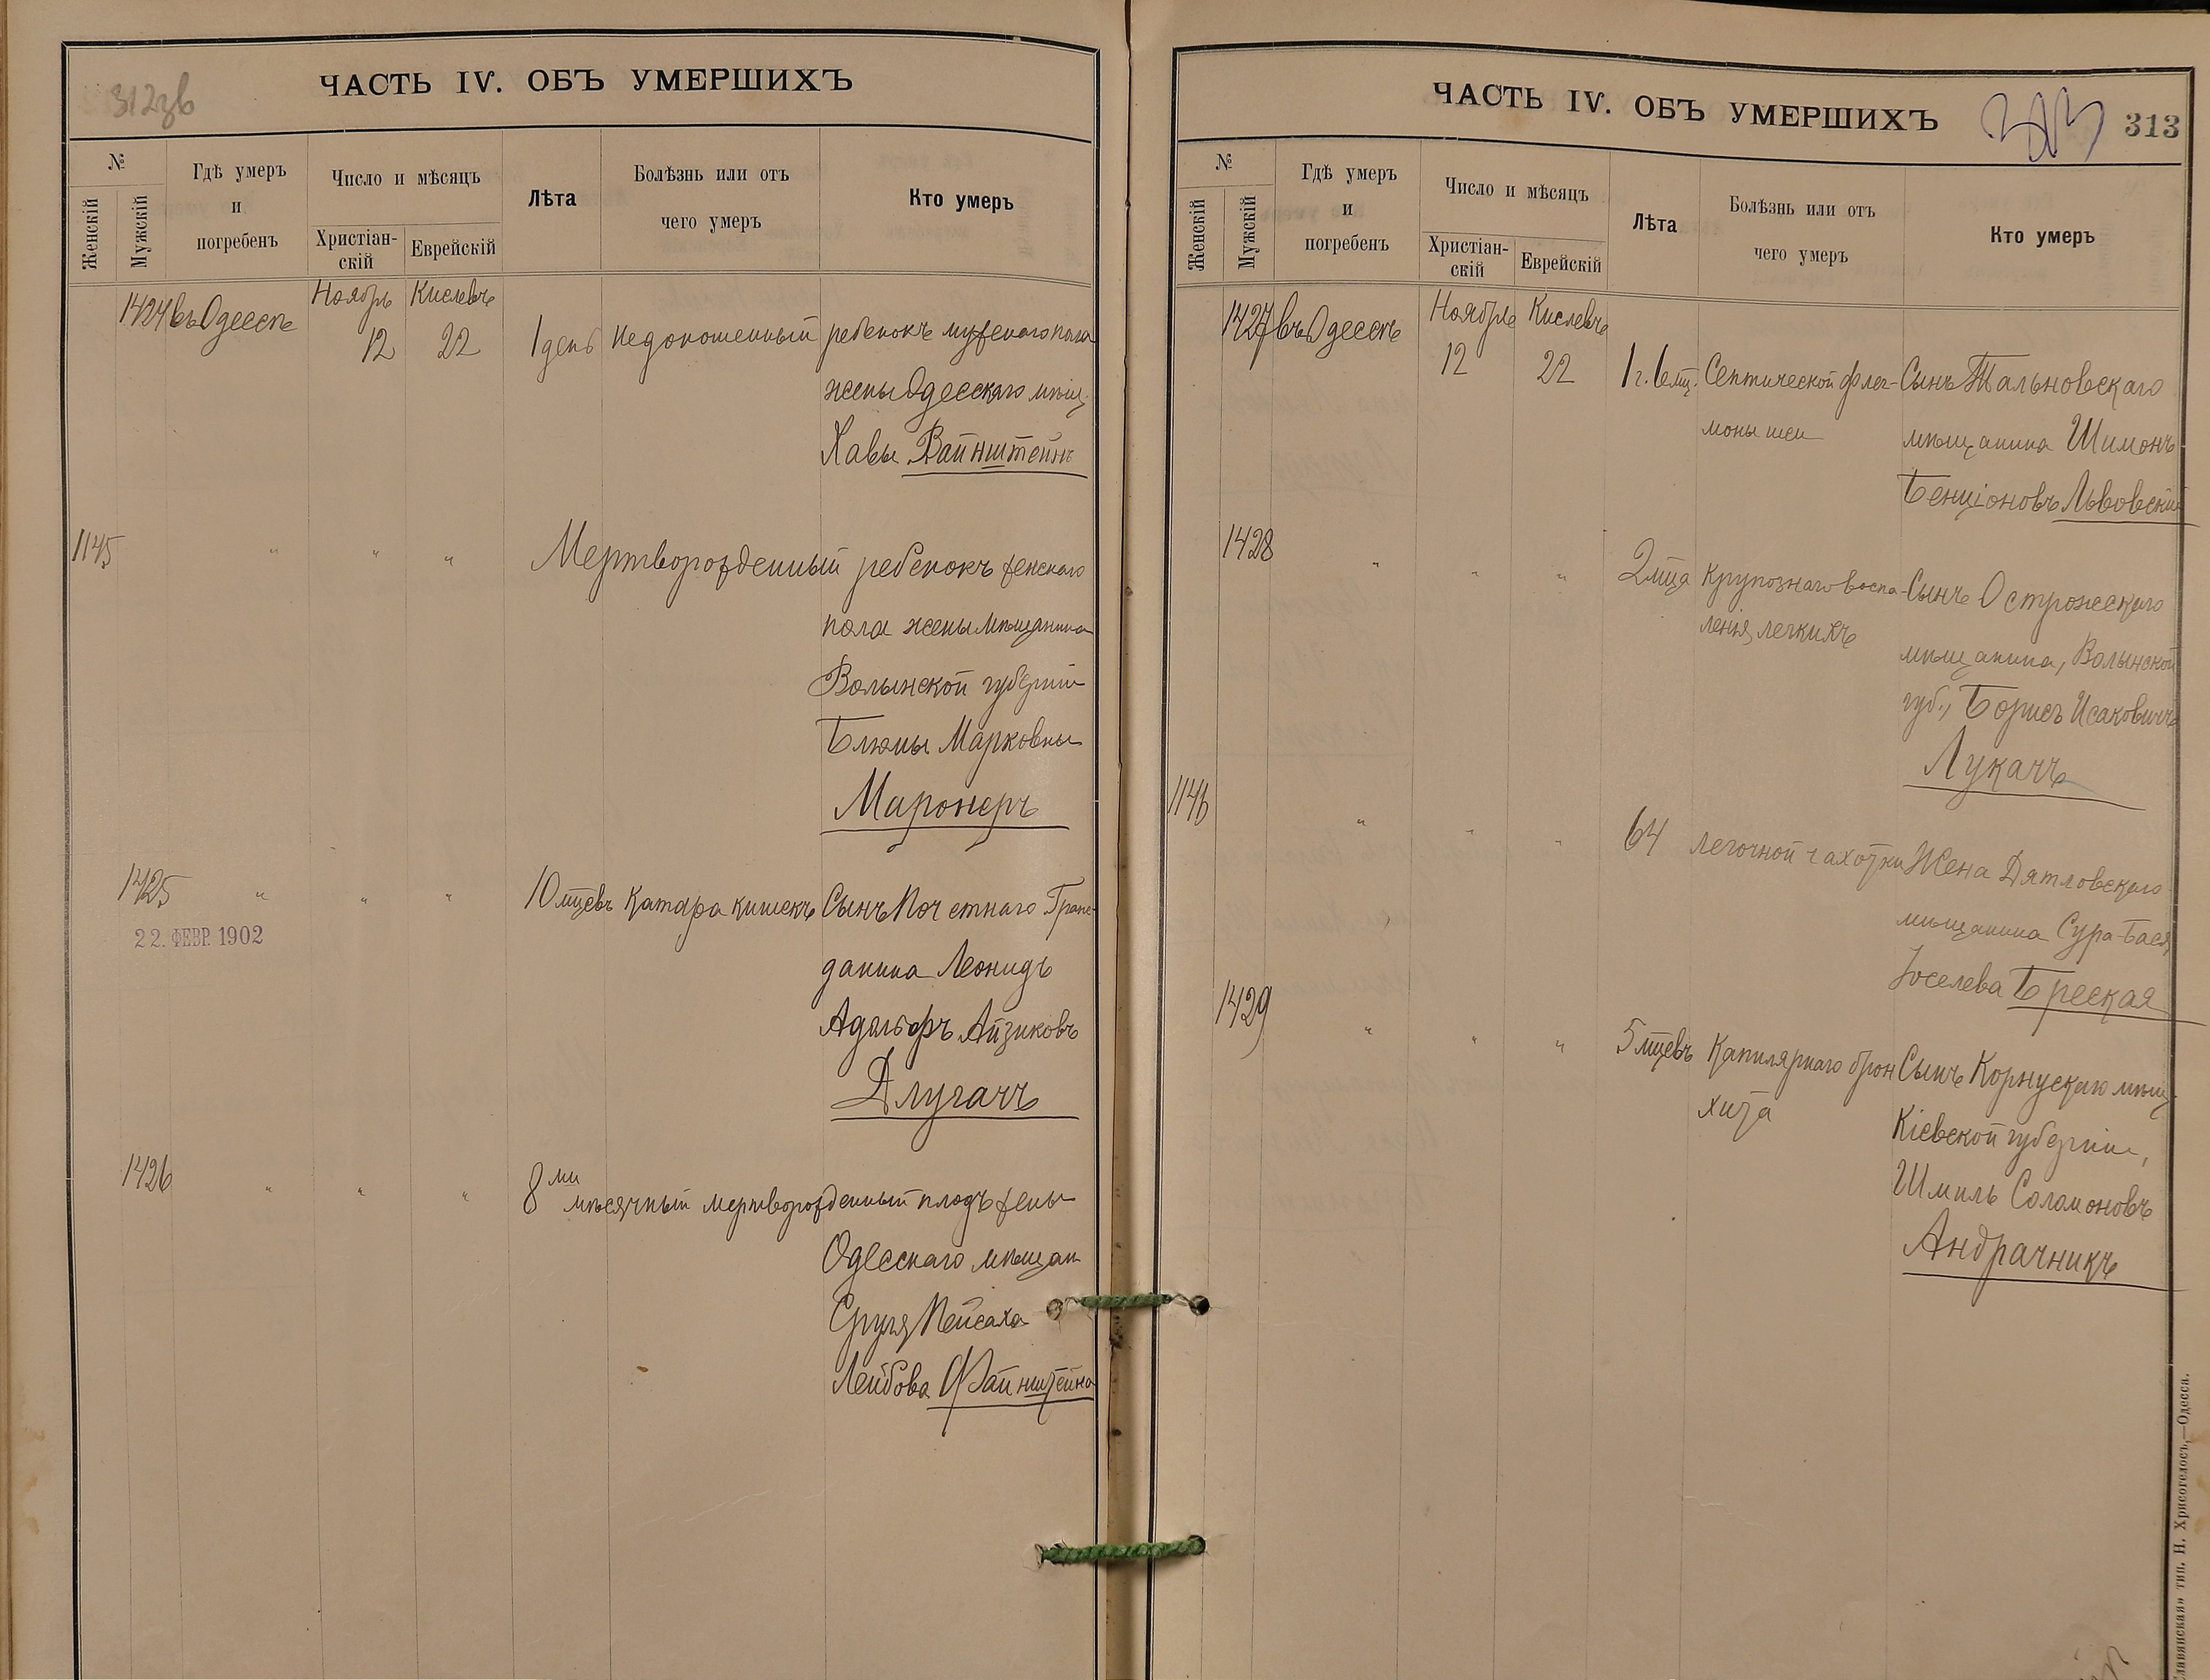 312 зв
ЧАСТЬ IV. ОБЪ УМЕРШИХЪ
№
Женскій
Мужскій
Гдѣ умеръ
и
погребенъ
Число и мѣсяцъ
Христіан-
скій
Еврейскій
Лѣта
Болѣзнь или отъ
чего умеръ
Кто умеръ
Ноябрь Кислевъ
1424 въ Одессѣ 12 22 1 день недоношенный ребенокъ мужскаго пола
жены Одесскаго мѣщ.
Хавы Вайнштейнъ
1145 " " " Мертворожденный ребенокъ женскаго
пола жены мѣщанина
Волынской губерніи
Блюмы Марковны
Маронеръ
1425 " " " 10 мцевъ Катара кишекъ Сынъ Почетнаго Граж-
22. ФЕВР. 1902
данина Леонидъ
Адольфъ Айзиковъ
Длугачъ
1426 " " " 8 ми мѣсячный мертворожденный плодъ жены
Одесскаго мѣщан
Сруля Пейсаха
Лейбова Файнштейна
ЧАСТЬ IV. ОБЪ УМЕРШИХЪ
313
313
№
Женскій
Мужскій
Гдѣ умеръ
и
погребенъ
Число и мѣсяцъ
Христіан-
скій
Еврейскій
Лѣта
Болѣзнь или отъ
чего умеръ
Кто умеръ
Ноябрь Кислевъ
1427 въ Одессѣ 12 22 1 г. 6 мц. Септической флег- Сынъ Тальновскаго
моны шеи мѣщанина Шимонъ
Бенціоновъ Львовскій
1428 " " " 2 мца Крупознаго воспа- Сынъ Острожскаго
ленія легкихъ мѣщанина, Волынской
губ., Борисъ Исаковичъ
Лукачъ
1146 " " " 64 легочной чахотки Жена Дятловскаго
мѣщанина Сура-Бася
Іоселева Бреская
1429 " " " 5 мцевъ Капилярнаго брон Сынъ Корнускаго мѣщ.
хита Кіевской губерніи,
Шмиль Соломоновъ
Андрачникъ
«Славянская» тип. Н. Хрисогелосъ,—Одесса.